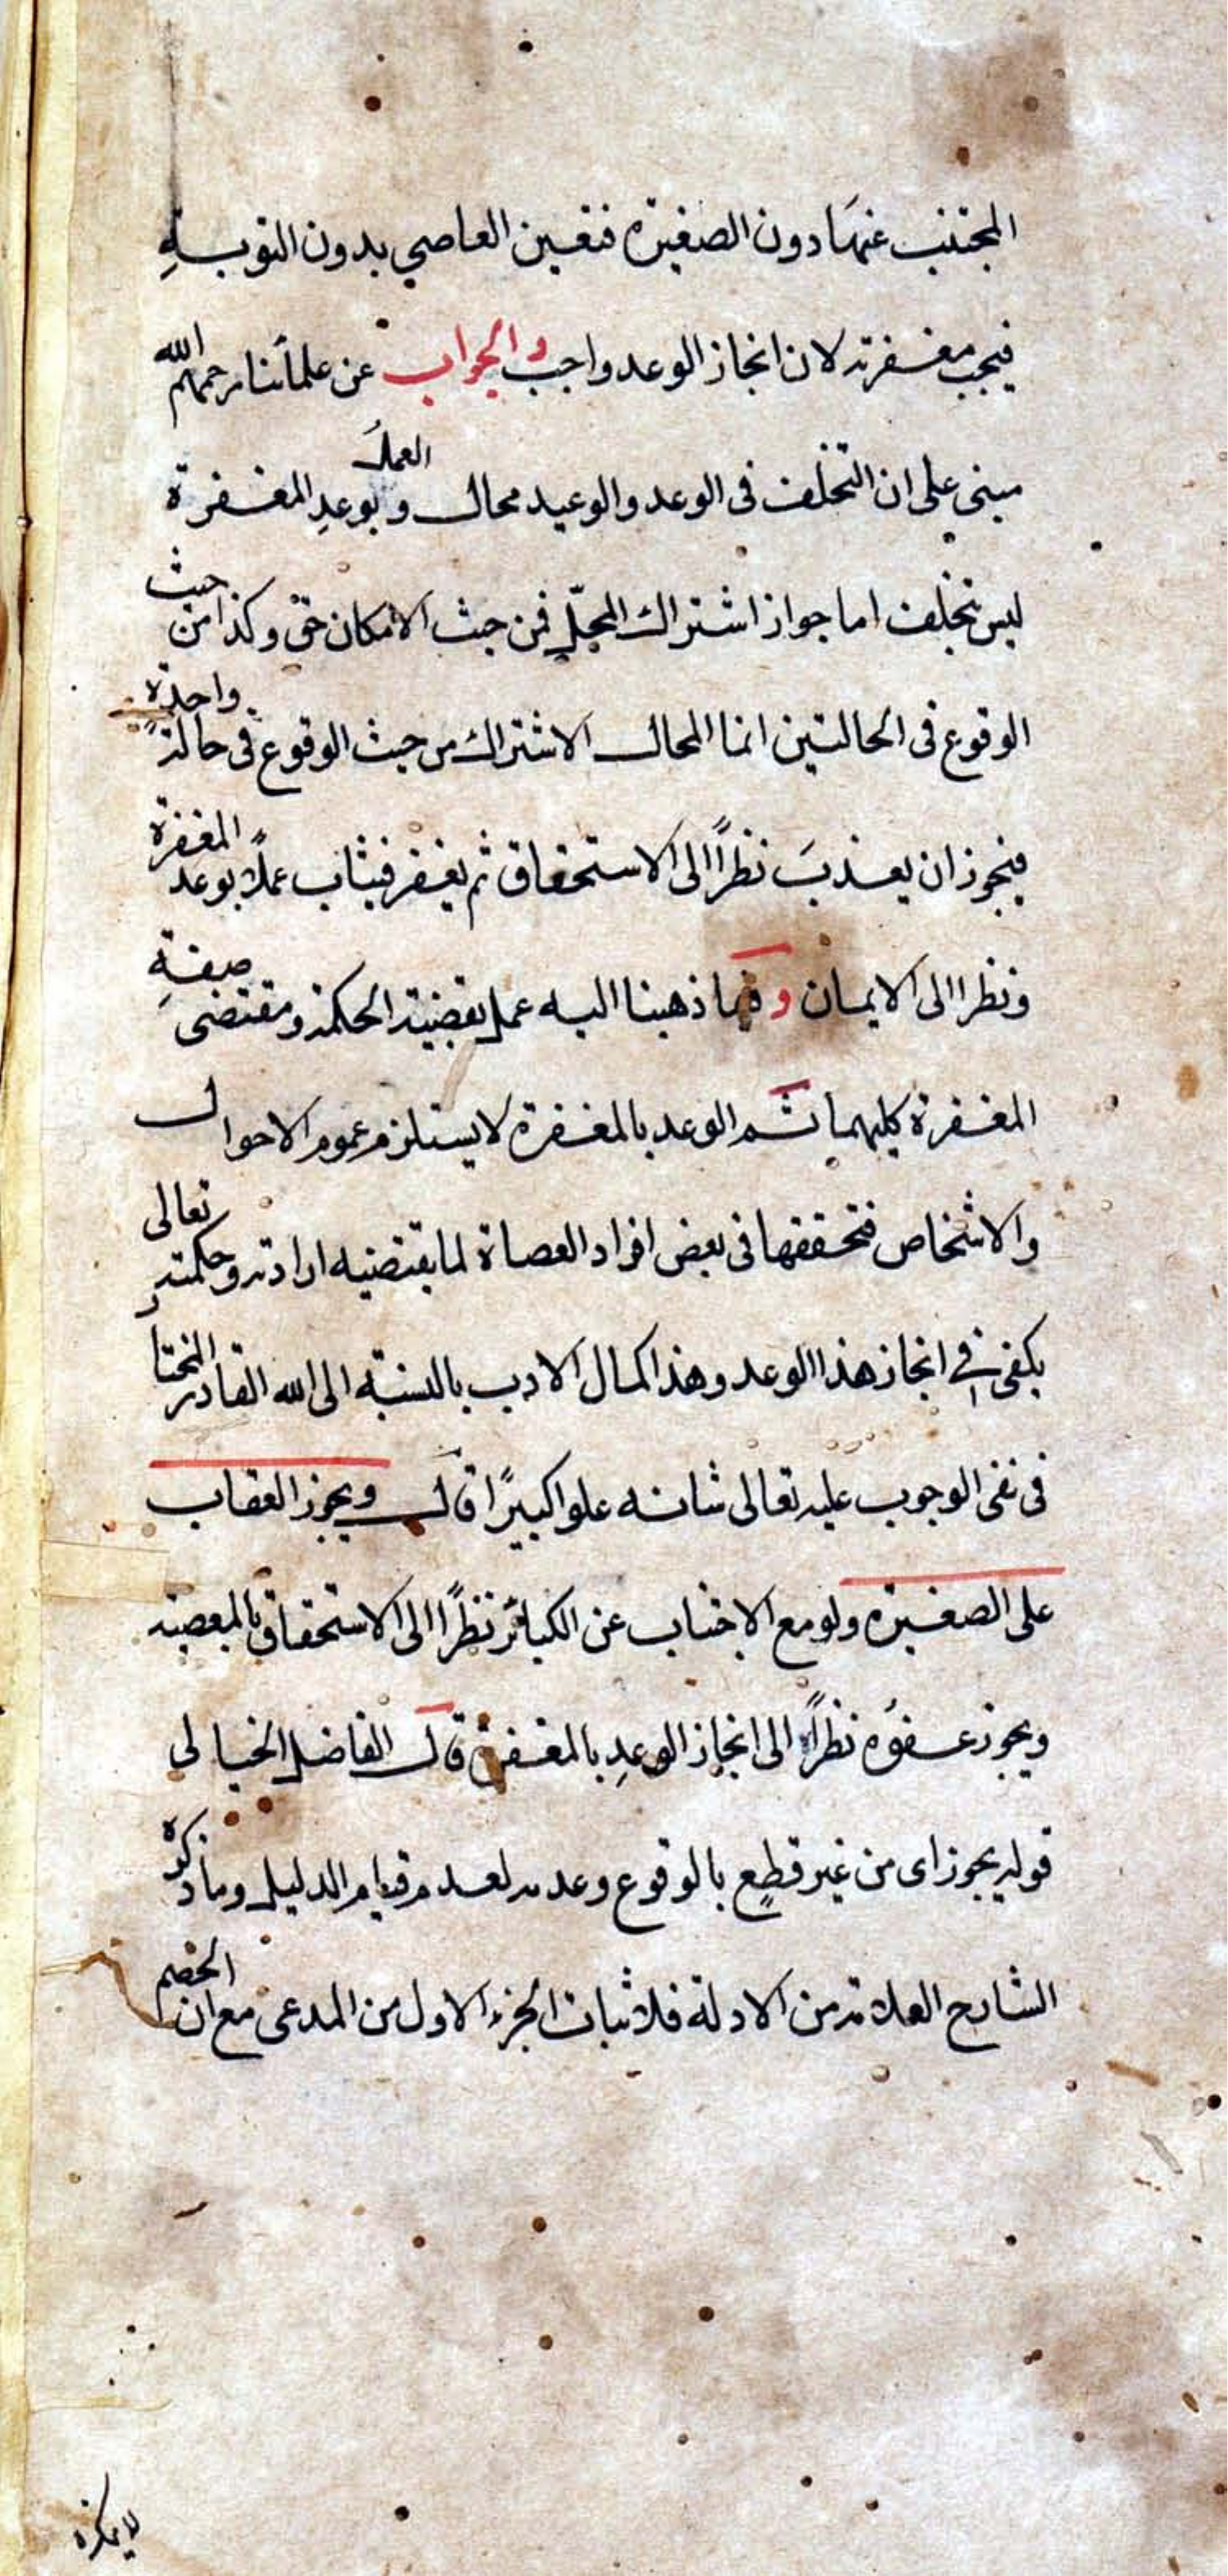 المجتنب عنها دون الصغيرة فتعين العاصي بدون التوبة
فيجب مغفرته لان انجاز الوعد واجب والجواب عن علمائنا رحمهم الله
مبني على ان التخلف فى الوعد والوعيد محال والعمل بوعد المغفرة
ليس بتخلف اما جواز اشتراك المحل فمن حيث الامكان حق وكذا من حيث
الوقوع فى الحالتين انما المحال الاشتراك من حيث الوقوع فى حالة واحدة
فيجوز ان يعذب نظرًا الى الاستحقاق ثم يغفر فيثاب عملًا بوعد المغفرة
ونظرا الى الايمان و فيما ذهبنا اليه عمل بقضية الحكمة ومقتضى صفة
المغفرة كليهما ثم الوعد بالمغفرة لا يستلزم عموم الاحوال
والاشخاص فتحققها فى بعض افراد العصاة لما يقتضيه ارادته وحكمته تعالى
يكفى فى انجاز هذا الوعد وهذا كمال الادب بالنسبة الى الله القادر المختار
فى نفى الوجوب عليه تعالى شانه علوا كبيرًا قال ويجوز العقاب
على الصغيرة ولو مع الاجتناب عن الكبائر نظرًا الى الاستحقاق بالمعصية
ويجوز عفوه نظرًا الى انجاز الوعد بالمغفرة قال الفاضل الخيالى
قوله يجوز اى من غير قطع بالوقوع وعدمه لعدم قيام الدليل وما ذكره
الشارح العلامة من الادلة فلاثبات الجزء الاول من المدعى مع ان الخصم
لا ينكره